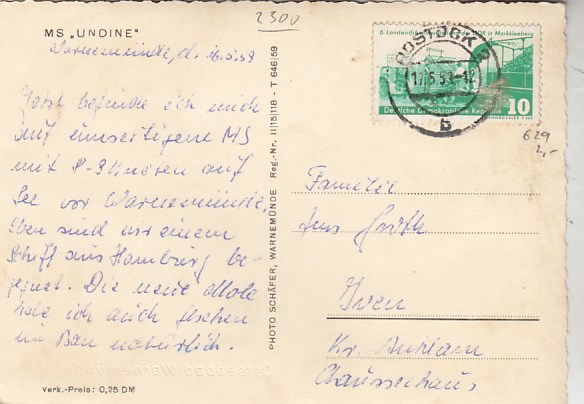 MS „UNDINE"
2300
Warnemünde, d. 16.5.59
Jetzt befinde ich mich
auf umseitigem MS
mit 8-9 Knoten auf
See vor Warnemünde,
Eben sind wir einem
Schiff aus Hamburg be-
gegnet. Die neue Mole
habe ich auch gesehen
im Bau natürlich.
Verk.-Preis: 0,25 DM
PHOTO SCHÄFER, WARNEMÜNDE Reg.-Nr. II|15|118 - T 646/59
Ostseebad Warnemünde
6. Landwirtschaftsausstellung der DDR in Markkleeberg
Deutsche Demokratische Republik 10
ROSTOCK
17.5.59-12
b
629
2,-
Familie
Iven
Kr. Anklam
Chausseehaus